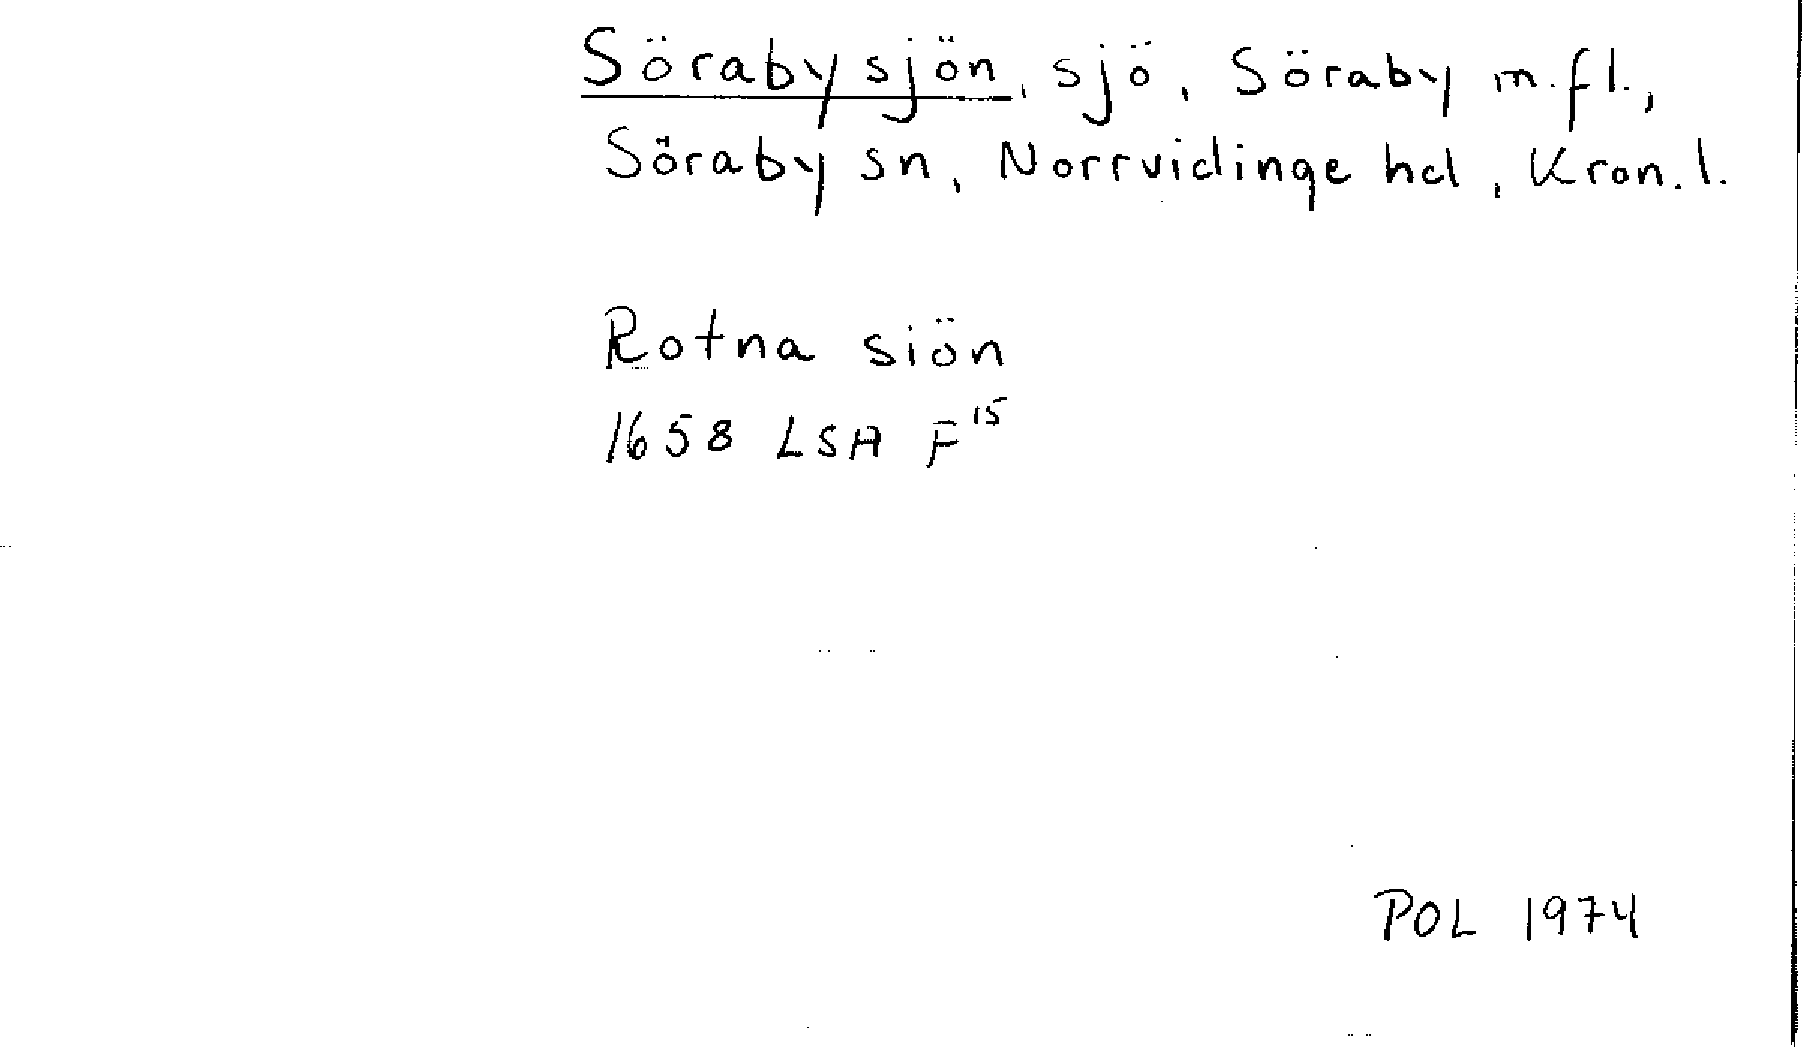 Sörabysjön, sjö, Söraby m.fl.,
Söraby sn, Norrvidinge hd, Kron. l.
Rotna siön
1658 LSA F15
POL 1974